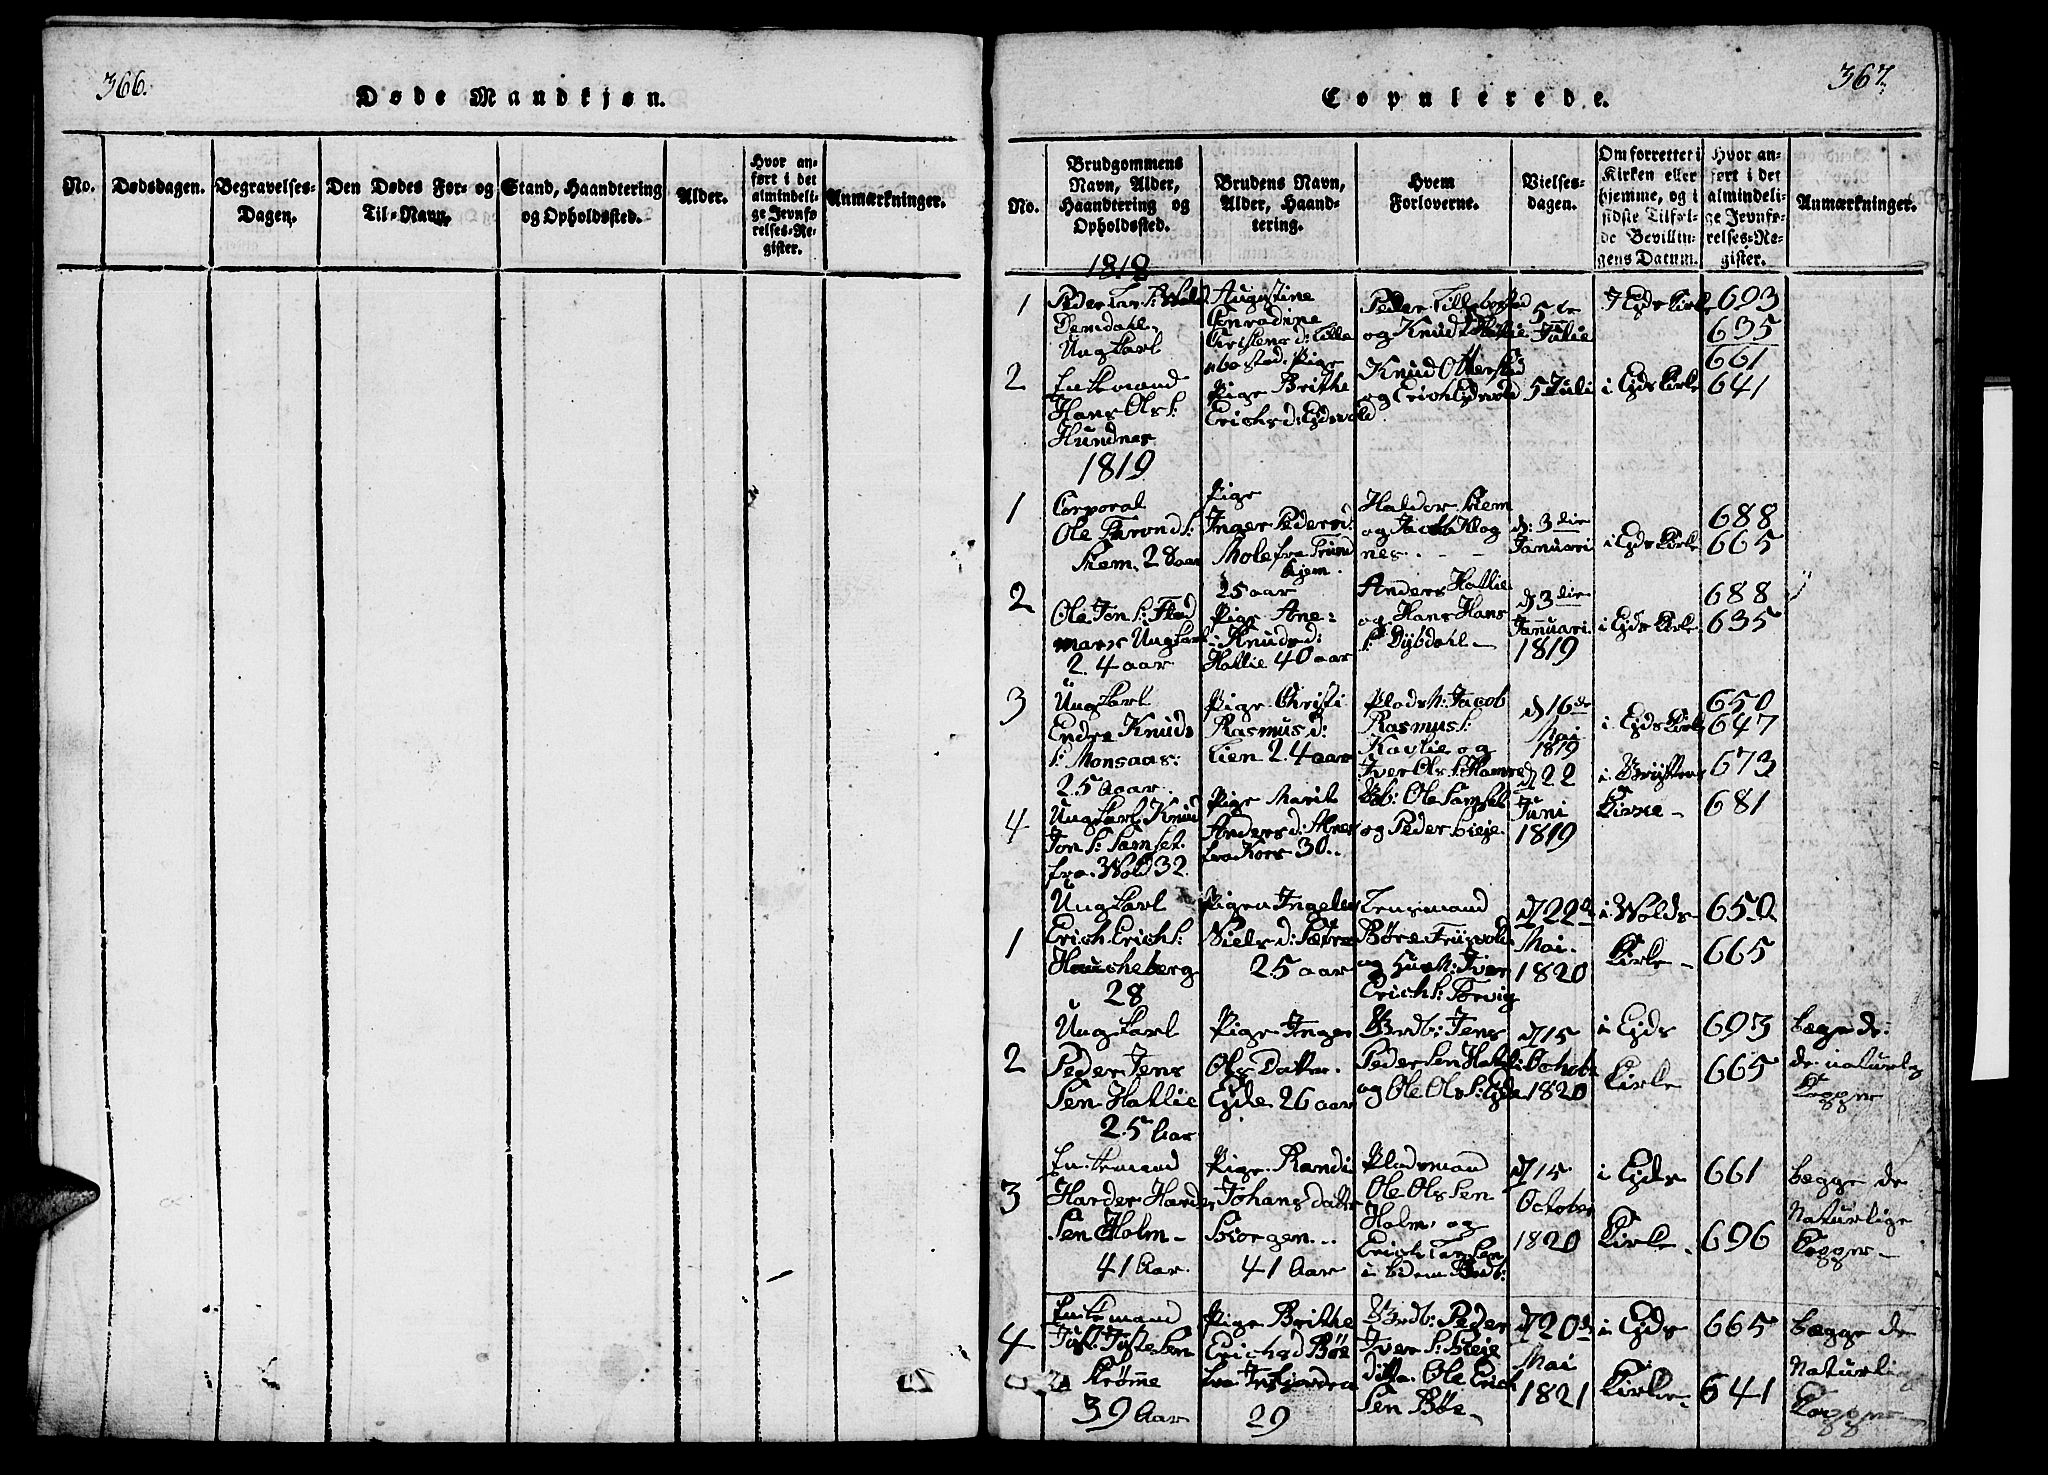 366.
Døde Mandkjøn.
No.
Dødsdagen.
Begravelses-
Dagen.
Den Dødes For- og
Til-Navn.
Stand, Haandtering
og Opholdssted.
Alder.
Hvor an-
ført i det
almindeli-
ge Jevnfø
relses-Re-
gister.
Anmærkninger.
367.
Copulerede.
No.
Brudgommens
Navn, Alder,
Haandtering og
Opholdssted.
Brudens Navn,
Alder, Haand-
tering.
Hvem
Forloverne.
Vielses-
dagen.
Om forrettet i
Kirken eller
hjemme, og i
sidste Tilfæl-
de Bevillin-
gens Datum.
Hvor an-
ført i det
almindeli-
ge Jevnfø-
relses-Re-
gister.
Anmærkninger.
1818
1
Ungkarl
Augustine
Conradine
Pige
Peder
og Knud Hatlie
5te
Julie
I Eids Kirke
693
635
2
Enkemand
Hans Ols S:
Hundnes
Pige Brithe
Erichs d: Eidsvold
Knud
og Erich Eidsvold
5 Juli
i Eids Kirke
661
641
1819
1
Corporal
Ole Trond S:
28 aar
Pige
Inger Peders d:
Mole fra Trund
hjem.
25 aar
Haldor
og Jacob Klog
nes.
d: 3 die
Januari
i Eids Kirke
688
665
2
Ole Jon S: Flad
mark Ungkarl
24 aar
Pige Ane
Knuds d:
Hatlie 40 aar
Anders Hatlie
og Hans Hans
S: Dybdahl
d 3 die
Januari
1819
i Eids Kirke
688
635
3
Ungkarl
Endre Knuds
S: Monsaas:
25 Aar.
Pige Christi
Rasmus d:
Lien 24 aar
Plads M: Jacob
Rasmus S:
Kavlie og
Iver Ols S: Hamre
d 16 de
Mai
1819
i Eids Kirke
650
647
4
Ungkarl Knud
Jon S: Samset
fra Wold 32
Pige Marit
Anders d:
fra Kors 30
Ole Samset
og Peder Bieje
d 22
Juni
1819
i Grytten
Kirke
673
681
1
Ungkarl
Erich Erich S:
Haucheberg
28
Pigen Ingelev
Niels d: Sætre
25 aar
Lensmand
Børe Friisvold
og Huus M: Iver
Erich S: Torvig
d 22 d
Mai
1820
i Wolds
Kirke
650
665
2
Ungkarl
Peder Jens
Sen Hatlie
25 Aar
Pige Inger
Ols Datter
Eide 26 aar
Grdb: Jens
Peder Sen Hatli
og Ole Ols S: Eide
d 15
October
1820
i Eids
Kirke
693
665
begge de
naturlig
Kopper
3
Enkemand
Harder Harder
Sen Holm
41 Aar
Pige Randi
Johans datter
41 Aar
Pladsmand
Ole Ols Sen
Holm og
Erich
d 15
October
1820
i Eids
Kirke
661
696
begge de
Naturlige
Kopper
4
Enkemand
Just Juste Sen
Krømme
39 Aar
Pige Brithe
Erichs d Bøe
fra Isfjorden
29
Grdb: Peder
Iver S: Bieje
ditto Ole Erich
Sen Bøe
d 20 d
Mai
1821
i Eids
Kirke
665
641
begge de
Naturli
Kopper